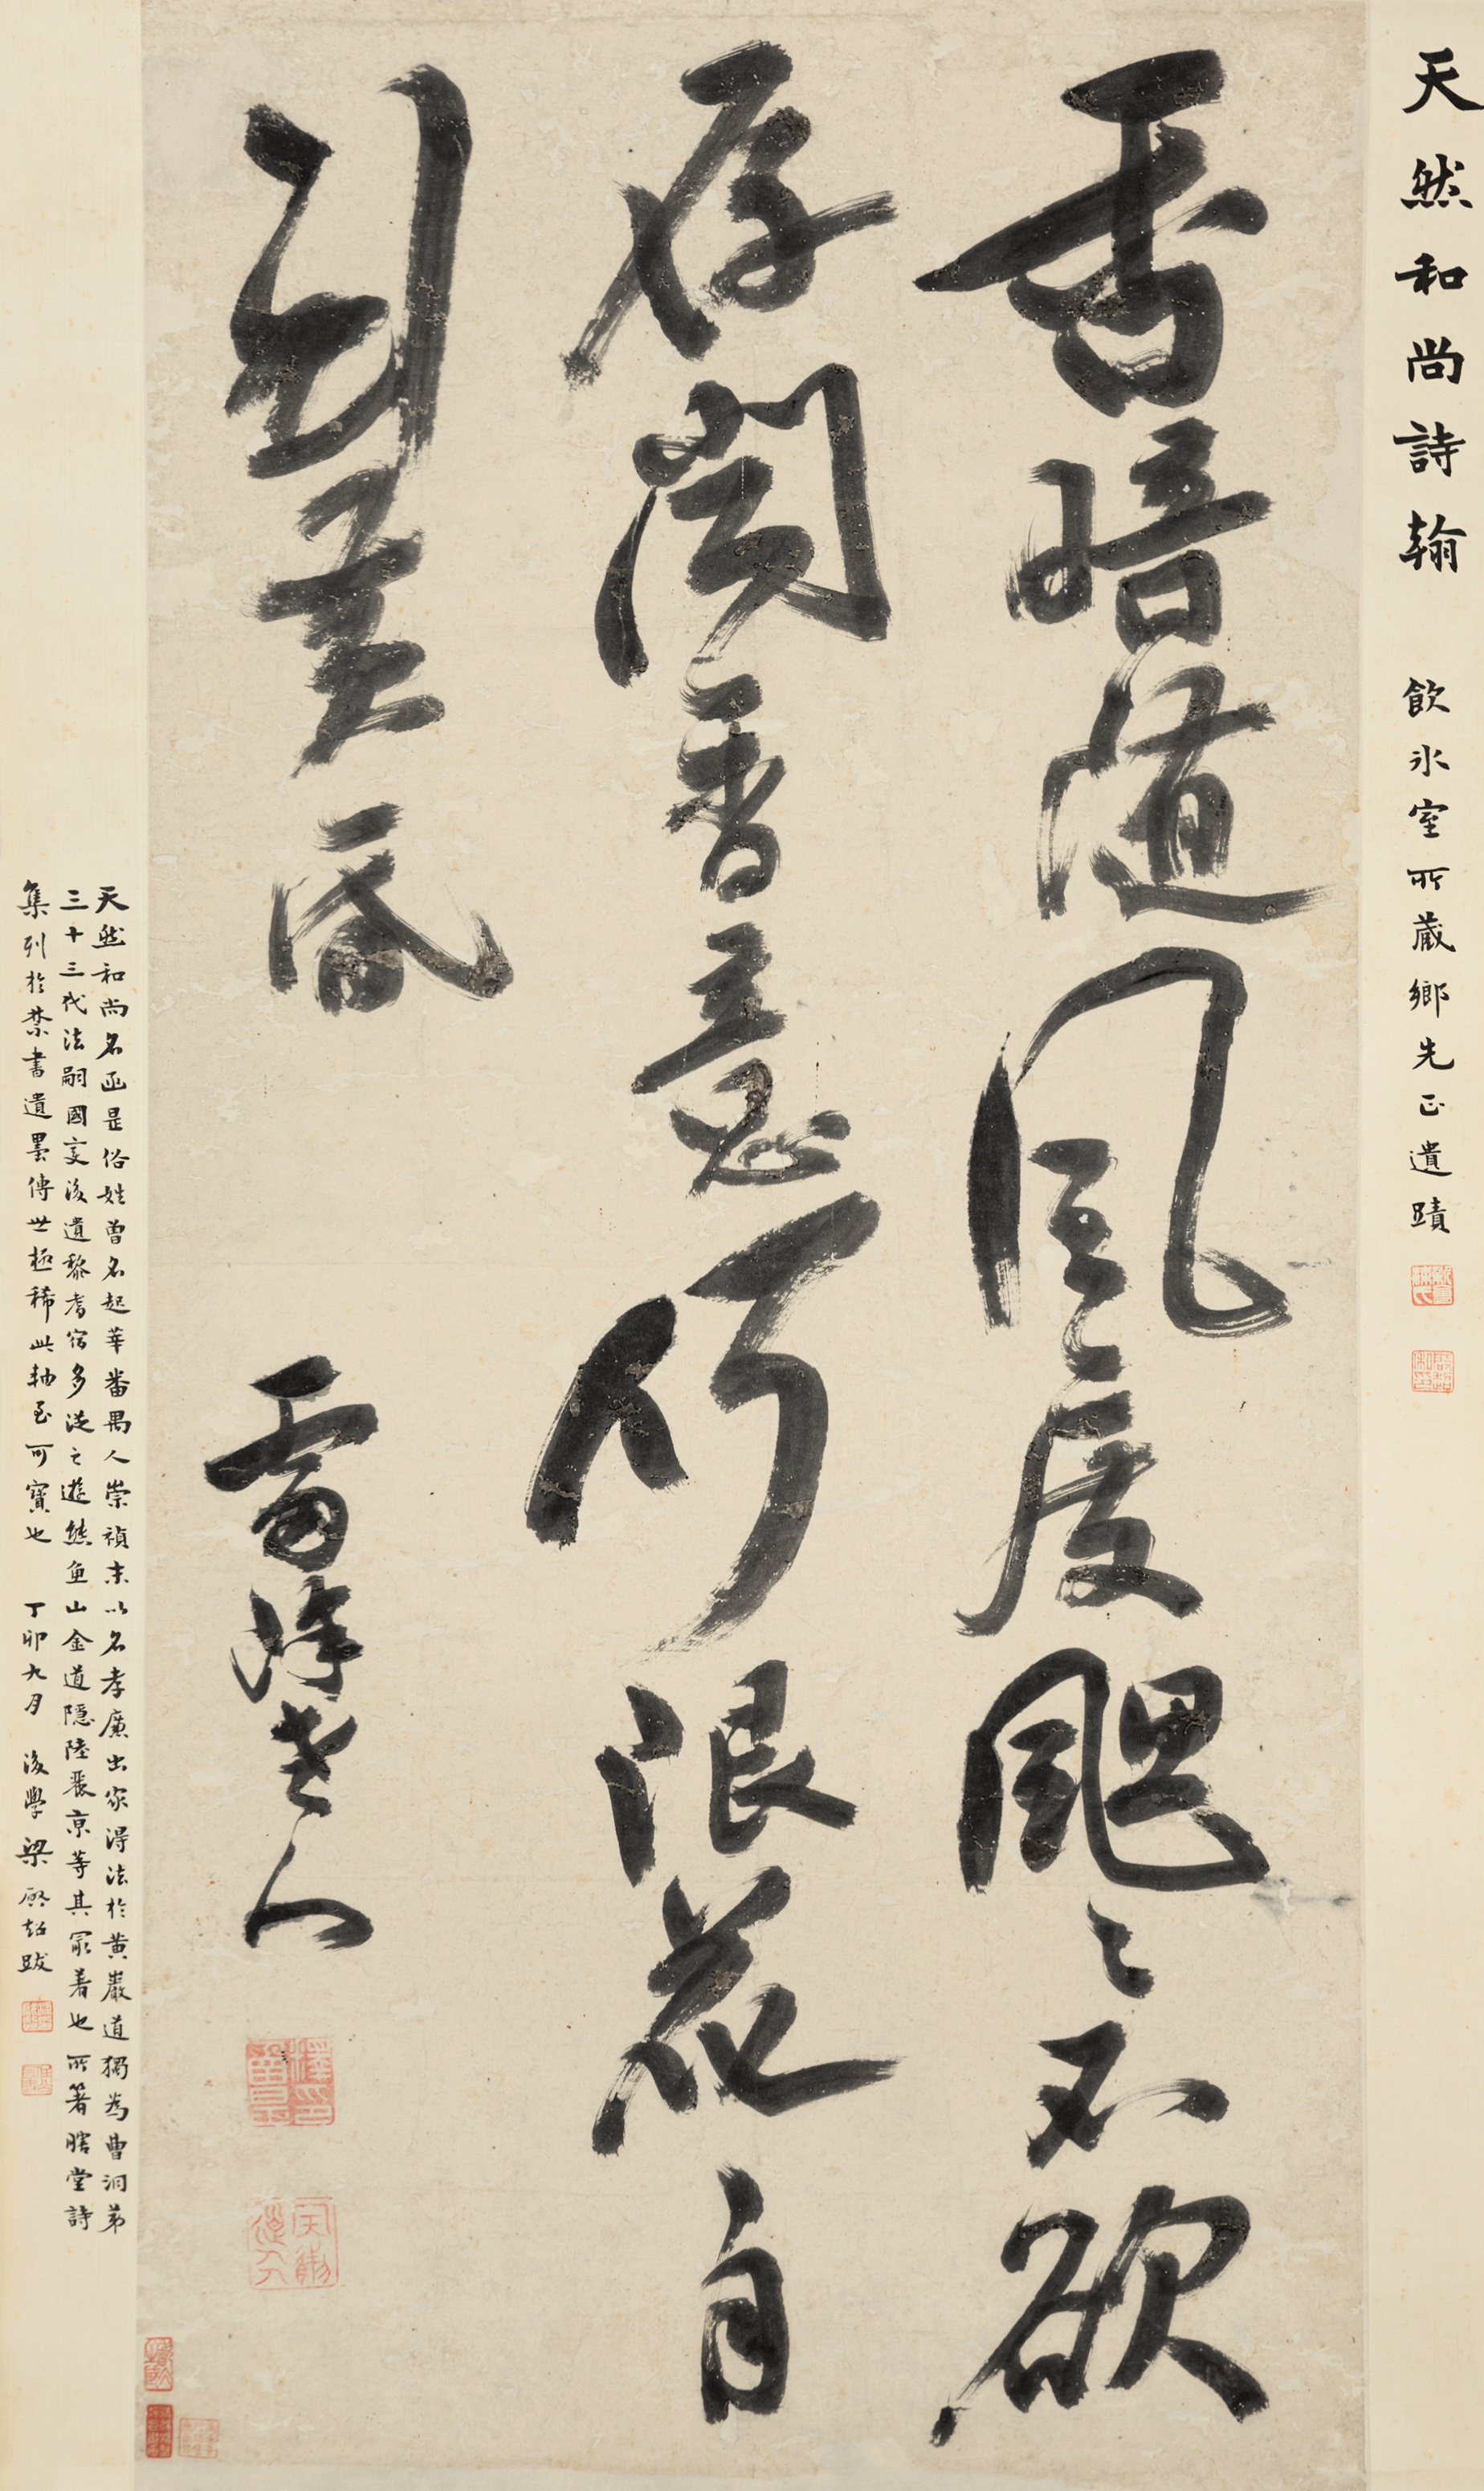 天然和尚詩翰 飲冰室所藏鄉先正遺蹟
香暗隨風度颸〻不欲
存聞香意何限花自
到黃昏 雷峰老人
天然和尚名函昰俗姓曾名起莘番禺人崇禎末以名孝廉出家得法於黃巖道獨為曹洞弟
三十三代法嗣國變後遺黎耆宿多從之遊熊魚山金道隱陸麗京等其最著也所著瞎堂詩
集列於禁書遺墨傳世極稀此軸至可寶也 丁卯九月 後學梁啟超跋